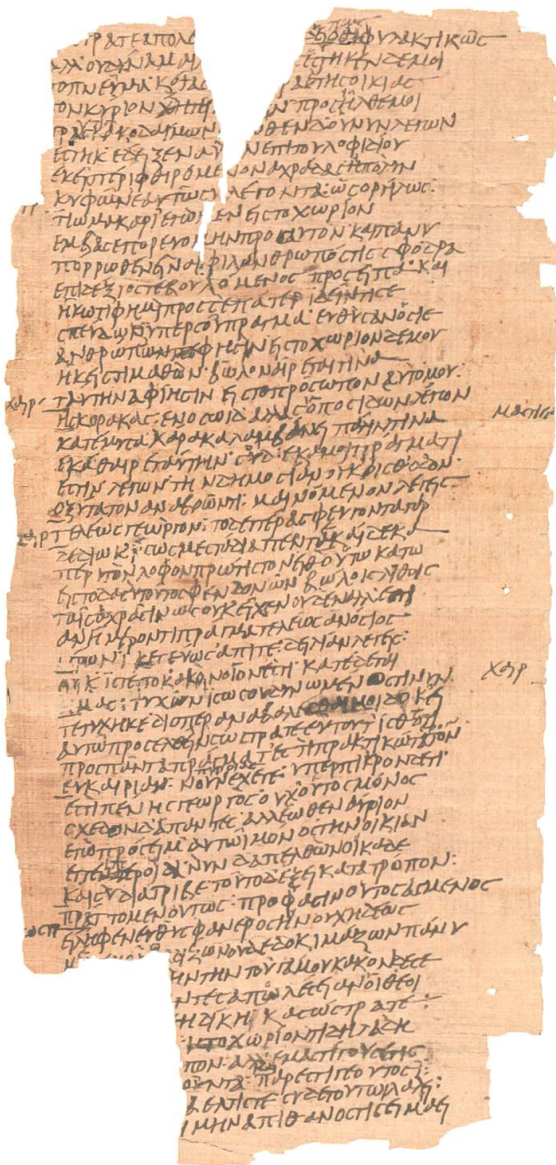 ΣΩΣΤΡΑΤΕ ΑΠΟΛΟ ΦΥΛΑΚΤΙΚΩΣ
ΑΛΛ ΟΥ ΔΥΝΑΜΑΙ ΕΣΤΗΚΕΝ ΔΕ ΜΟΙ
ΤΟ ΠΝΕΥΜΑ ΚΟΨΑΣ ΤΗΣ ΟΙΚΙΑΣ
ΤΟΝ ΚΥΡΙΟΝ ΖΗΤΕΙ Ν ΠΡΟΣΗΛΘΕ ΜΟΙ
ΓΡΑΥΣ ΚΑΚΟΔΑΙΜΩΝ ΟΘΕΝ Δ ΟΥ ΝΥΝ ΛΕΓΩΝ
ΕΣΤΗΚ ΕΔΕΙΞΕΝ ΑΥ Ν ΕΠΙ ΤΟΥ ΛΟΦΙΔΙΟΥ
ΕΚΕΙ ΠΕΡΙΦΘΙΡΟΜΕΝΟΝ ΑΧΡΑΔΑΣ Η ΠΟΛΛΗΝ
ΚΥΦΩΝ ΕΑΥΤΩ Σ ΛΕΓΟΝΤΑ ΩΣ ΟΡΓΙΛΩΣ:
ΤΙ Ω ΜΑΚΑΡΙ ΕΓΩ ΕΝ ΕΙΣ ΤΟ ΧΩΡΙΟΝ
ΕΜΒΑΣ ΕΠΟΡΕΥΟΜΗΝ ΠΡΟΣ ΑΥΤΟΝ ΚΑΙ ΠΑΝΥ
ΠΟΡΡΩΘΕΝ ΕΙΝΑΙ ΦΙΛΑΝΘΡΩΠΟΣ ΤΙΣ ΣΦΟΔΡΑ
ΕΠΙΔΕΞΙΟΣ ΤΕ ΒΟΥΛΟΜΕΝΟΣ ΠΡΟΣΕΙΠΑ ΚΑΙ
ΗΚΩ ΤΙ ΦΗΜΙ ΠΡΟΣ ΣΕ ΠΑΤΕΡ ΙΔΕΙΝ ΤΙ ΣΕ
ΣΠΕΥΔΩΝ ΥΠΕΡ ΣΟΥ ΠΡΑΓΜΑ ΕΥΘΥΣ Δ ΑΝΟΣΙΕ
ΑΝΘΡΩΠΕ ΦΗΣΙΝ ΕΙΣ ΤΟ ΧΩΡΙΟΝ ΔΕ ΜΟΥ
ΗΚΕΙΣ ΤΙ ΜΑΘΩΝ ΒΩΛΟΝ ΑΙΡΕΤΑΙ ΤΙΝΑ
ΤΑΥΤΗΝ ΑΦΙΗΣΙΝ ΕΙΣ ΤΟ ΠΡΟΣΩΠΟΝ ΑΥΤΟ ΜΟΥ:
ΕΙΣ ΚΟΡΑΚΑΣ: ΕΝ ΟΣΩ Δ ΑΛΛΑ Σ Ο ΠΟΣΙΔΩΝ ΛΕΓΩΝ
ΚΑΤΕΜΥΣΑ ΧΑΡΑΚΑ ΛΑΜΒΑΝΕΙ ΠΑΛΙΝ ΤΙΝΑ
ΕΚΑΘΑΙΡΕ ΤΑΥΤΗΝ ΣΥ Δ Ε ΚΑΜΟΙ ΠΡΑΓΜΑ ΤΙ
ΕΣΤΙΝ ΛΕΓΩΝ ΤΗΝ ΔΗΜΟΣΙΑΝ ΟΥΚ ΟΙΣΘΑΣ ΟΔΟΝ
ΟΞΥΤΑΤΟΝ ΑΝΑΒΟΩΝ ΤΙ: ΜΑΙΝΟΜΕΝΟΝ ΛΕΓΕΙΣ
ΤΕΛΕΩΣ ΓΕΩΡΓΟΝ: ΤΟ ΔΕ ΠΕΡΑΣ ΦΕΥΓΟΝΤΑ ΓΑΡ
ΔΕΔΙΩΚ ΙΣΩΣ ΜΕ ΣΤΑΔΙΑ ΠΕΝΤΕ ΚΑΙ ΔΕΚΑ
ΠΕΡΙ ΤΟΝ ΛΟΦΟΝ ΠΡΩΤΙΣΤΟΝ ΕΙΘ ΟΥΤΩ ΚΑΤΩ
ΕΙΣ ΤΟ ΔΑΣΥ ΤΟΥΤΟ ΣΦΕΝΔΟΝΩΝ ΒΩΛΟΙΣ ΛΙΘΟΙΣ
ΤΑΙΣ ΑΧΡΑΣΙΝ ΩΣ ΟΥΚ ΕΙΧΕΝ ΟΥΔΕΝ ΑΛΛ ΕΤΙ
ΑΝΗΜΕΡΟΝ ΤΙ ΠΡΑΓΜΑ ΤΕΛΕΩΣ ΑΝΟΣΙΟΣ
ΓΕΡΩΝ ΙΚΕΤΕΥΩ Σ ΑΠΙΤΕ: ΔΕΙΛΙΑΝ ΛΕΓΕΙΣ:
ΟΥΚ ΙΣΤΕ ΤΟ ΚΑΚΟΝ ΟΙΟΝ ΕΣΤΙ ΚΑΤΕΔΕΤΑΙ ΧΑΙΡ
ΗΜΑΣ: ΤΥΧΩΝ ΙΣΩΣ ΟΔΥΝΩΜΕΝΟΣ ΤΙ ΝΥΝ
ΤΕΤΥΧΗΚΕ ΔΙΟΠΕΡ ΑΝΑΒΑΛΕΣΘΑΙ ΜΟΙ ΔΟΚΕΙ
ΑΥΤΩ ΠΡΟΣΕΛΘΕΙΝ ΣΩΣΤΡΑΤΕ ΕΥ ΤΟΥΤ ΙΣΘ ΟΤΙ
ΠΡΟΣ ΠΑΝΤΑ ΠΡΑΓΜΑΤ ΕΣΤΙ ΠΡΑΚΤΙΚΩΤΑΤΟΝ
ΕΥΚΑΙΡΙΑ: ΝΟΥΝ ΕΧΕΤΕ: ΥΠΕΡΠΙΚΡΟΝ ΔΕ ΤΙ
ΕΣΤΙ ΠΕΝΗΣ ΓΕΩΡΓΟΣ ΟΥΧ ΟΥΤΟΣ ΜΟΝΟΣ
ΣΧΕΔΟΝ Δ ΑΠΑΝΤΕΣ ΑΛΛ ΕΩΘΕΝ ΑΥΡΙΟΝ
ΕΓΩ ΠΡΟΣΕΙΜ ΑΥΤΩ ΜΟΝΟΣ ΤΗΝ ΟΙΚΙΑΝ
ΕΠΕΙΠΕΡ ΟΙΔΑ ΝΥΝ Δ ΑΠΕΛΘΩΝ ΟΙΚΑΔΕ
ΚΑΙ ΣΥ ΔΙΑΤΡΙΒΕ ΤΟΥΤΟ Δ ΕΞΕΙ ΚΑΤΑ ΤΡΟΠΟΝ:
ΠΡΑΤΤΟΜΕΝ ΟΥΤΩΣ: ΠΡΟΦΑΣΙΝ ΟΥΤΟΣ ΑΣΜΕΝΟΣ
ΕΙΛΗΦΕΝ ΕΥΘΥΣ ΦΑΝΕΡΟΣ ΗΝ ΟΥΧ ΗΔΕΩΣ
ΙΖΩΝ ΟΥΔΕ ΔΟΚΙΜΑΖΩΝ ΠΑΝΥ
ΗΝ ΤΗΝ ΤΟΥ ΓΑΜΟΥ ΚΑΚΟΝ ΔΕ ΣΕ
ΝΤΕΣ ΑΠΩΛΕΣΕΙΑΝ ΟΙ ΘΕΟΙ
ΗΔΙΚΗΚΑ ΣΩΣΤΡΑΤΕ:
ΤΟ ΧΩΡΙΟΝ ΤΙ ΔΗΛΑΔΗ
ΠΟΝ ΑΛΛ ΕΜΑΣΤΙΓΟΥ ΣΕ ΤΙΣ
ΟΥΝΤΑ: ΠΑΡΕΣΤΙ ΓΕ ΟΥΤΟΣΙ:
ΒΕΛΤΙΣΤΕ ΣΥ ΔΕ ΤΟΥΤΩ ΛΑΛΕΙ:
ΙΜΗΝ ΑΠΙΘΑΝΟΣ ΤΙΣ ΕΙΜ ΑΕΙ